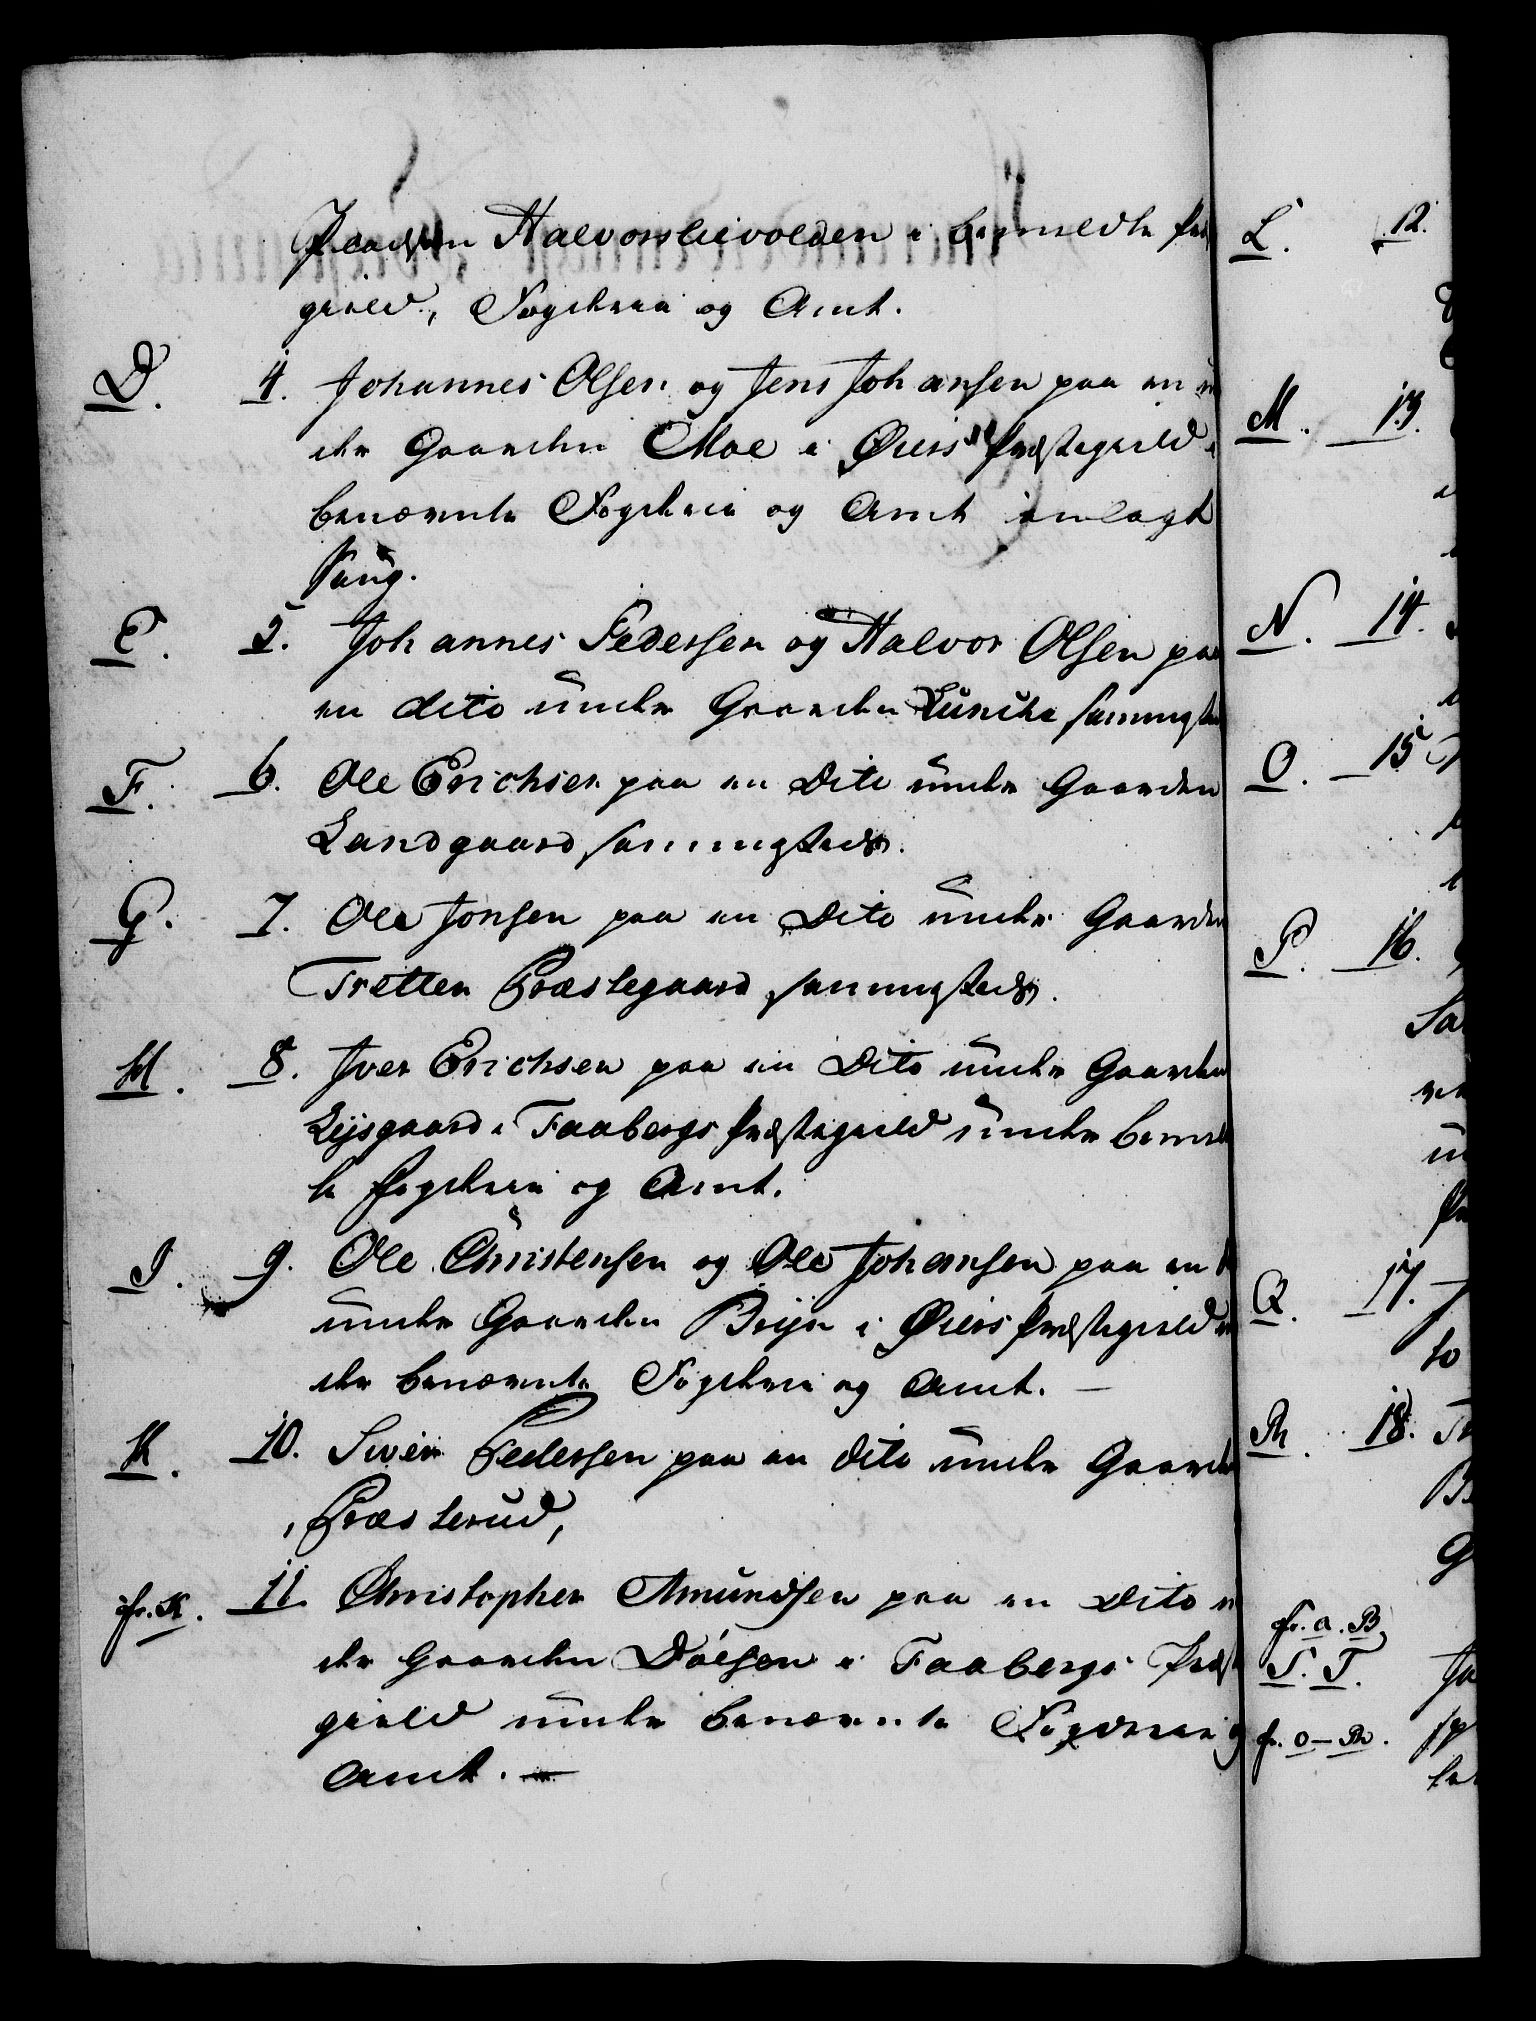 Pladsen Halvorslievolden i bemeldte Præste
gield, Fogderie og Amt.
D. 4. Johannes Olsen og Jens Johansen paa en un
der Gaarden Moe i Øiers Præstegield i
benævnte Fogderie og Amt inlagt
Saug.
E. 5. Johannes Pedersen og Halvor Olsen paa
en dito under Gaarden sammested
F. 6. Ole Erichsen paa en Dito under Gaarden
Landgaard sammesteds.
G. 7. Ole Jonsen paa en Dito under Gaarden
Tretten Præstegaard sammesteds.
H. 8. Iver Erichsen paa en Dito under Gaarden
Lysgaard i Faabergs Præstegield under bemeld
te Fogderie og Amt.
I. 9. Ole Christensen og Ole Johansen paa en
under Gaarden Brye i Øiers Præstegield un
der benævnte Fogderie og Amt. —
K. 10. Svein Pedersen paa en dito under Gaarden
Præsterud,
fr. K. 11. Christopher Amundsen paa en Dito un
der Gaarden Døesen i Faabergs Præste
gield under benævnte Fogderie og
Amt. —
L. 12.
M. 13.
N. 14.
O. 15
P. 16.
Q. 17.
R. 18.
fr. a. B.
S. T.
fr. o – R.